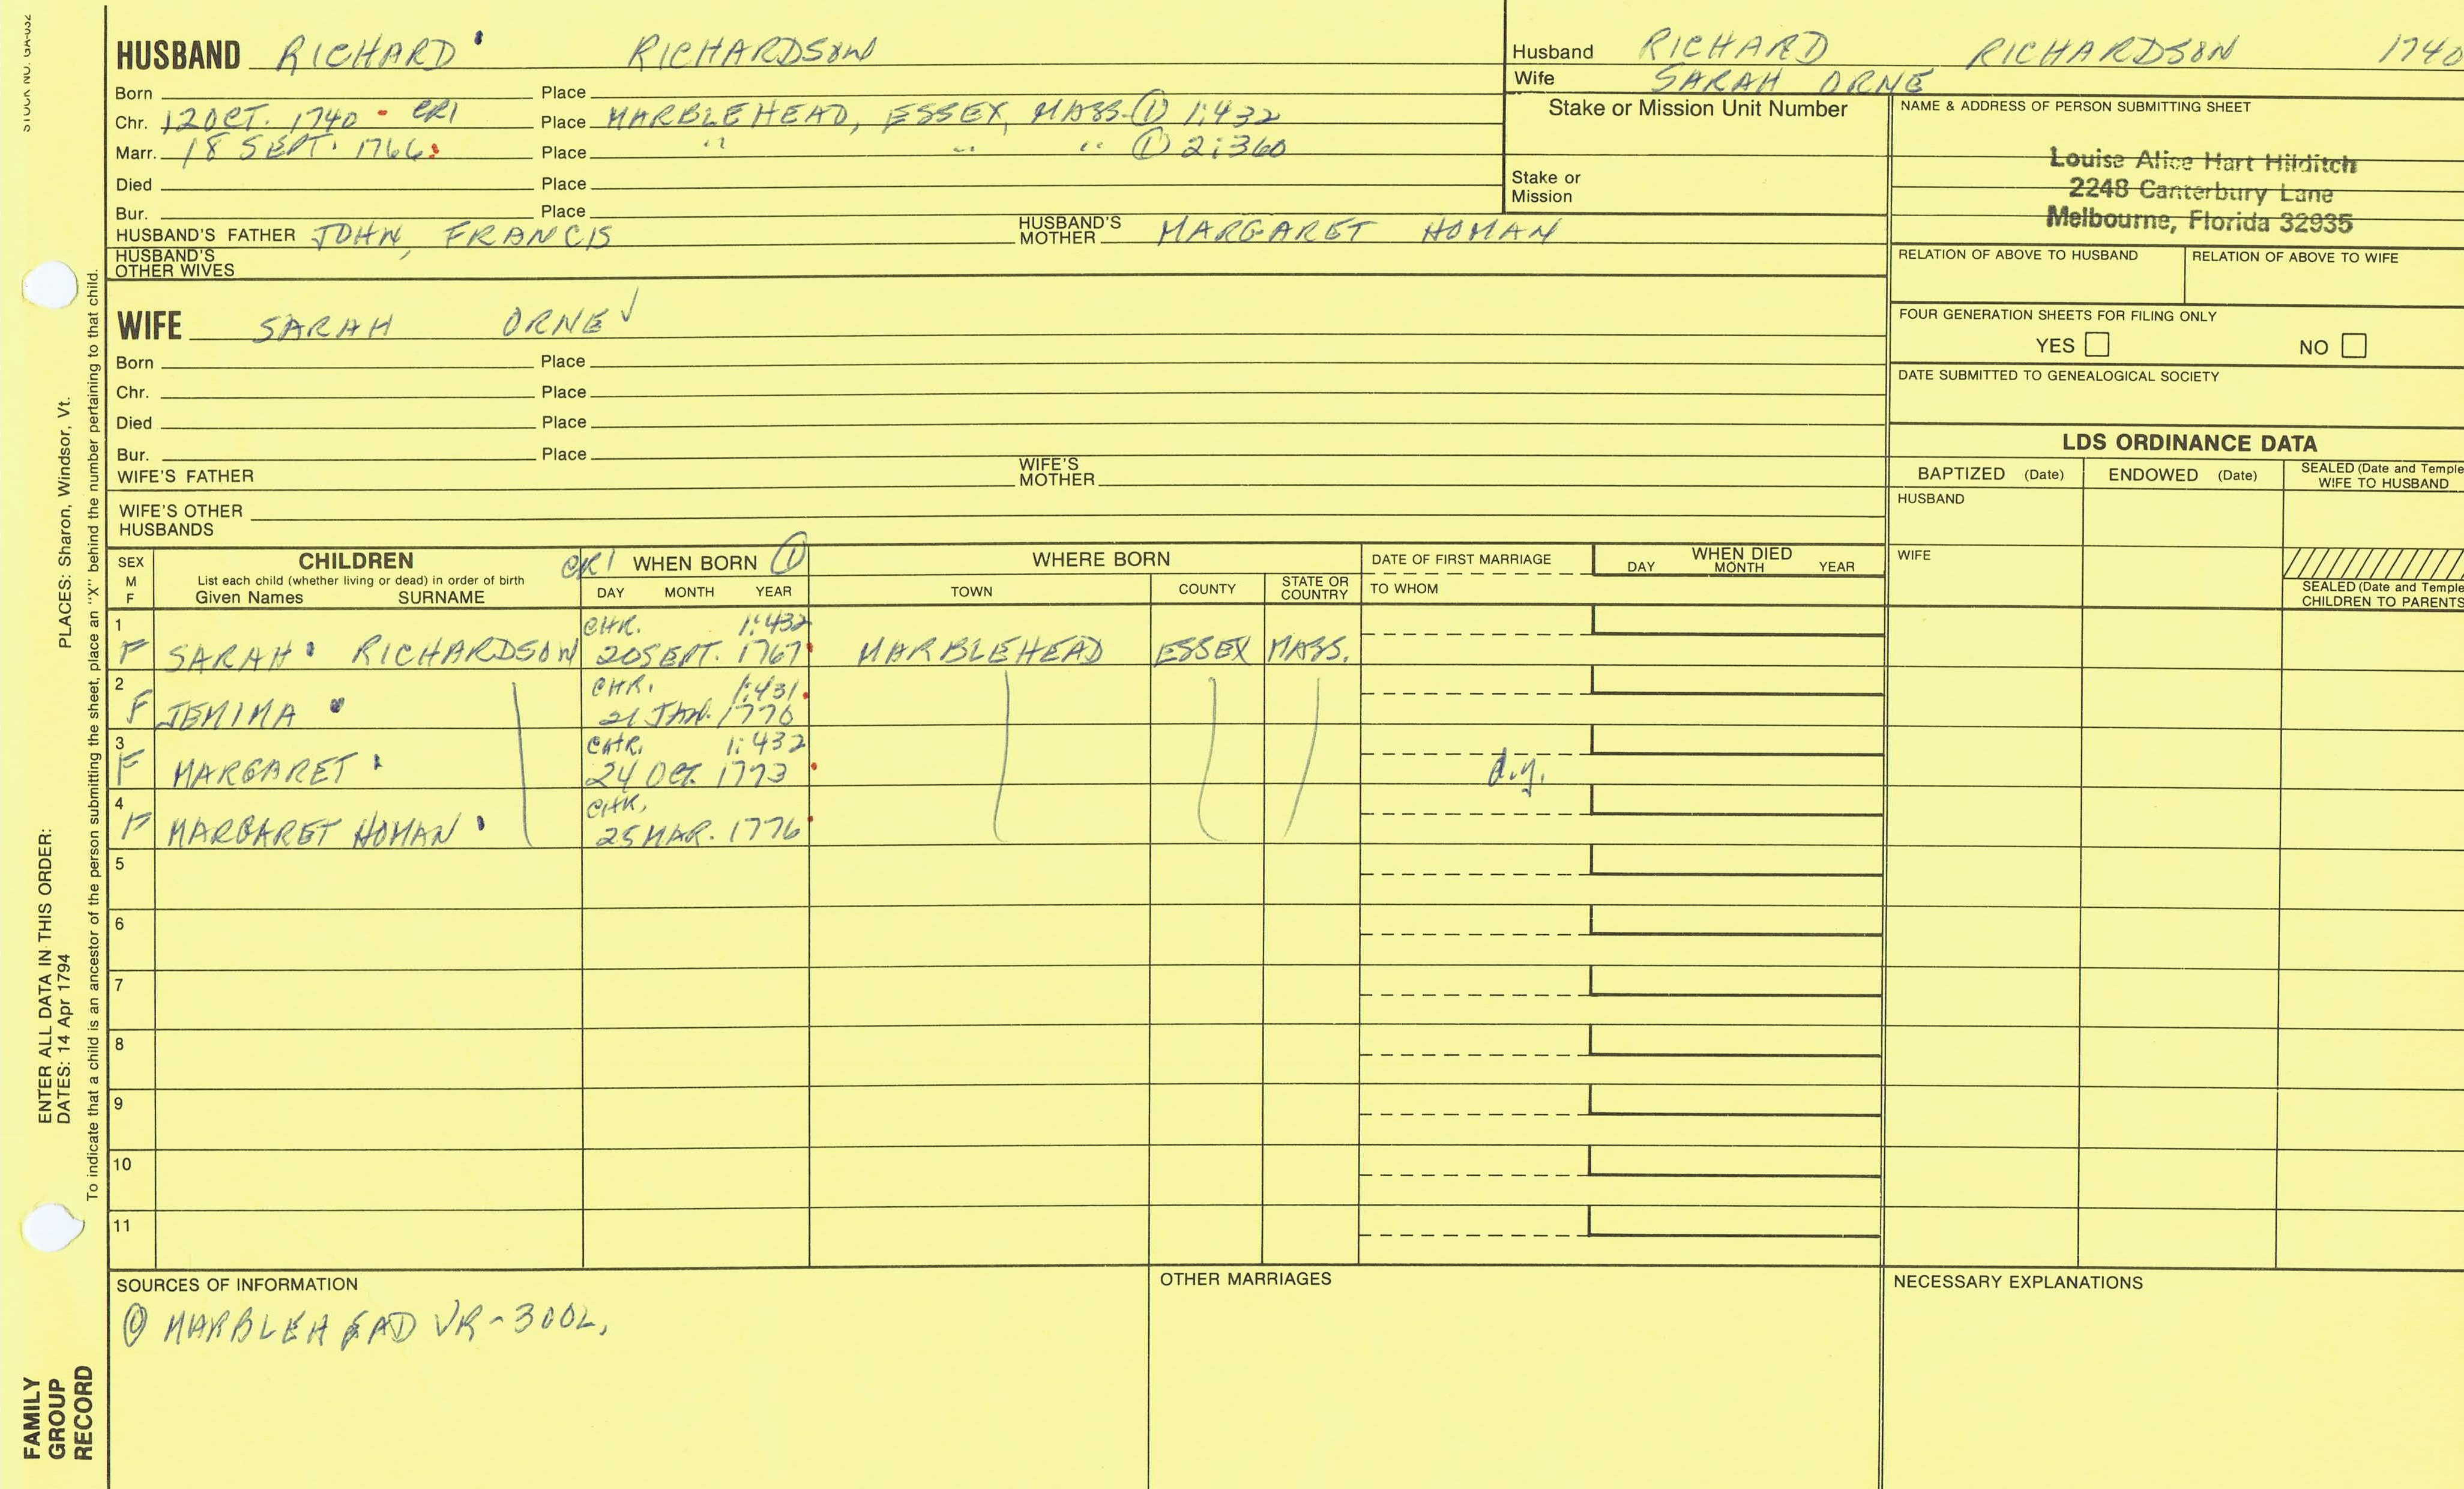 STOCK NO. GA-032
HUSBAND RICHARD RICHARDSON
Born Place
Chr. 12 OCT. 1740 - CR1 Place MARBLEHEAD, ESSEX, MASS. ① 1:432
Marr. 18 SEPT. 1766 Place " " " ① 2:360
Died Place
Bur. Place
HUSBAND'S FATHER JOHN, FRANCIS HUSBAND'S MOTHER MARGARET HOMAN
HUSBAND'S OTHER WIVES
WIFE SARAH ORNE ✓
Born Place
Chr. Place
Died Place
Bur. Place
WIFE'S FATHER WIFE'S MOTHER
WIFE'S OTHER HUSBANDS
Husband RICHARD RICHARDSON 1740
Wife SARAH ORNE
Stake or Mission Unit Number
Stake or Mission
NAME & ADDRESS OF PERSON SUBMITTING SHEET
Louise Alice Hart Hilditch
2248 Canterbury Lane
Melbourne, Florida 32935
RELATION OF ABOVE TO HUSBAND RELATION OF ABOVE TO WIFE
FOUR GENERATION SHEETS FOR FILING ONLY
YES NO
DATE SUBMITTED TO GENEALOGICAL SOCIETY
LDS ORDINANCE DATA
BAPTIZED (Date) ENDOWED (Date) SEALED (Date and Temple WIFE TO HUSBAND
HUSBAND
WIFE
SEALED (Date and Temple
CHILDREN TO PARENTS
SEX M F CHILDREN CR1 WHEN BORN ① WHERE BORN DATE OF FIRST MARRIAGE WHEN DIED
List each child (whether living or dead) in order of birth
Given Names SURNAME DAY MONTH YEAR TOWN COUNTY STATE OR COUNTRY TO WHOM DAY MONTH YEAR
1 CHR. 1:432
F SARAH RICHARDSON 20 SEPT. 1767 MARBLEHEAD ESSEX MASS.
2 CHR. 1:431
F JEMIMA 21 JAN. 1770
3 CHR. 1:432
F MARGARET 24 OCT. 1773 d.y.
4 CHR.
F MARGARET HOMAN 25 MAR. 1776
5
6
7
8
9
10
11
SOURCES OF INFORMATION
① MARBLEHEAD VR-300L,
OTHER MARRIAGES
NECESSARY EXPLANATIONS
PLACES: Sharon, Windsor, Vt.
To indicate that a child is an ancestor of the person submitting the sheet, place an "X" behind the number pertaining to that child.
ENTER ALL DATA IN THIS ORDER:
DATES: 14 Apr 1794
FAMILY
GROUP
RECORD